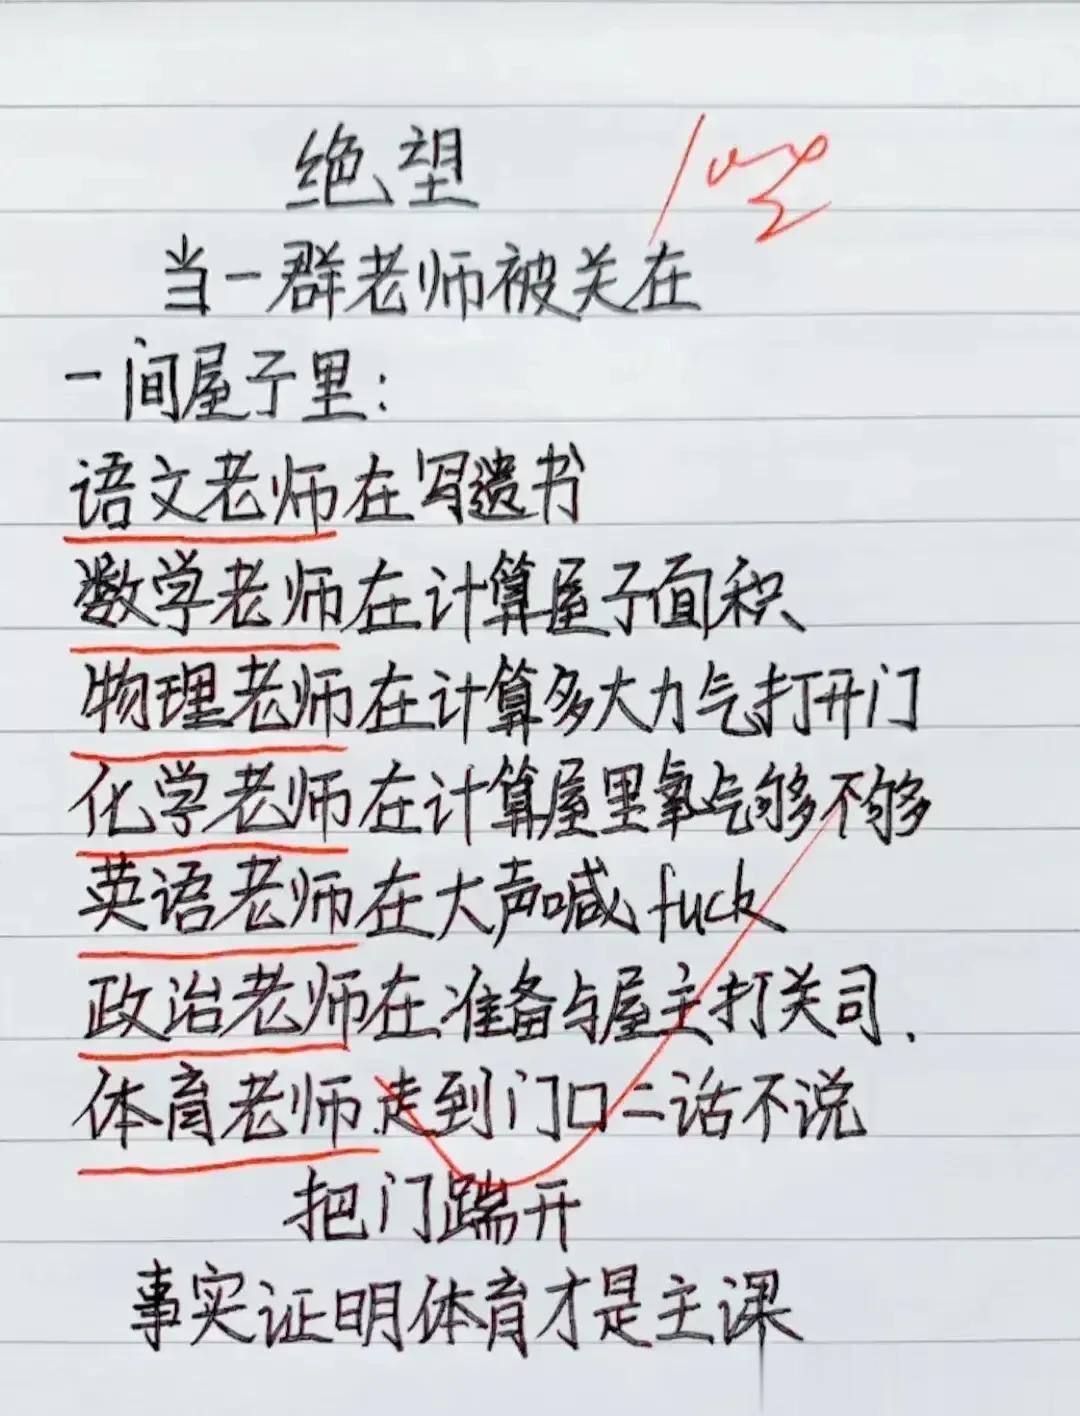 绝望
当一群老师被关在
一间屋子里：
语文老师在写遗书
数学老师在计算屋子面积
物理老师在计算多大力气打开门
化学老师在计算屋里氧气够不够
英语老师在大声喊 fuck
政治老师在准备与屋主打关司.
体育老师走到门口二话不说
把门踹开
事实证明体育才是主课